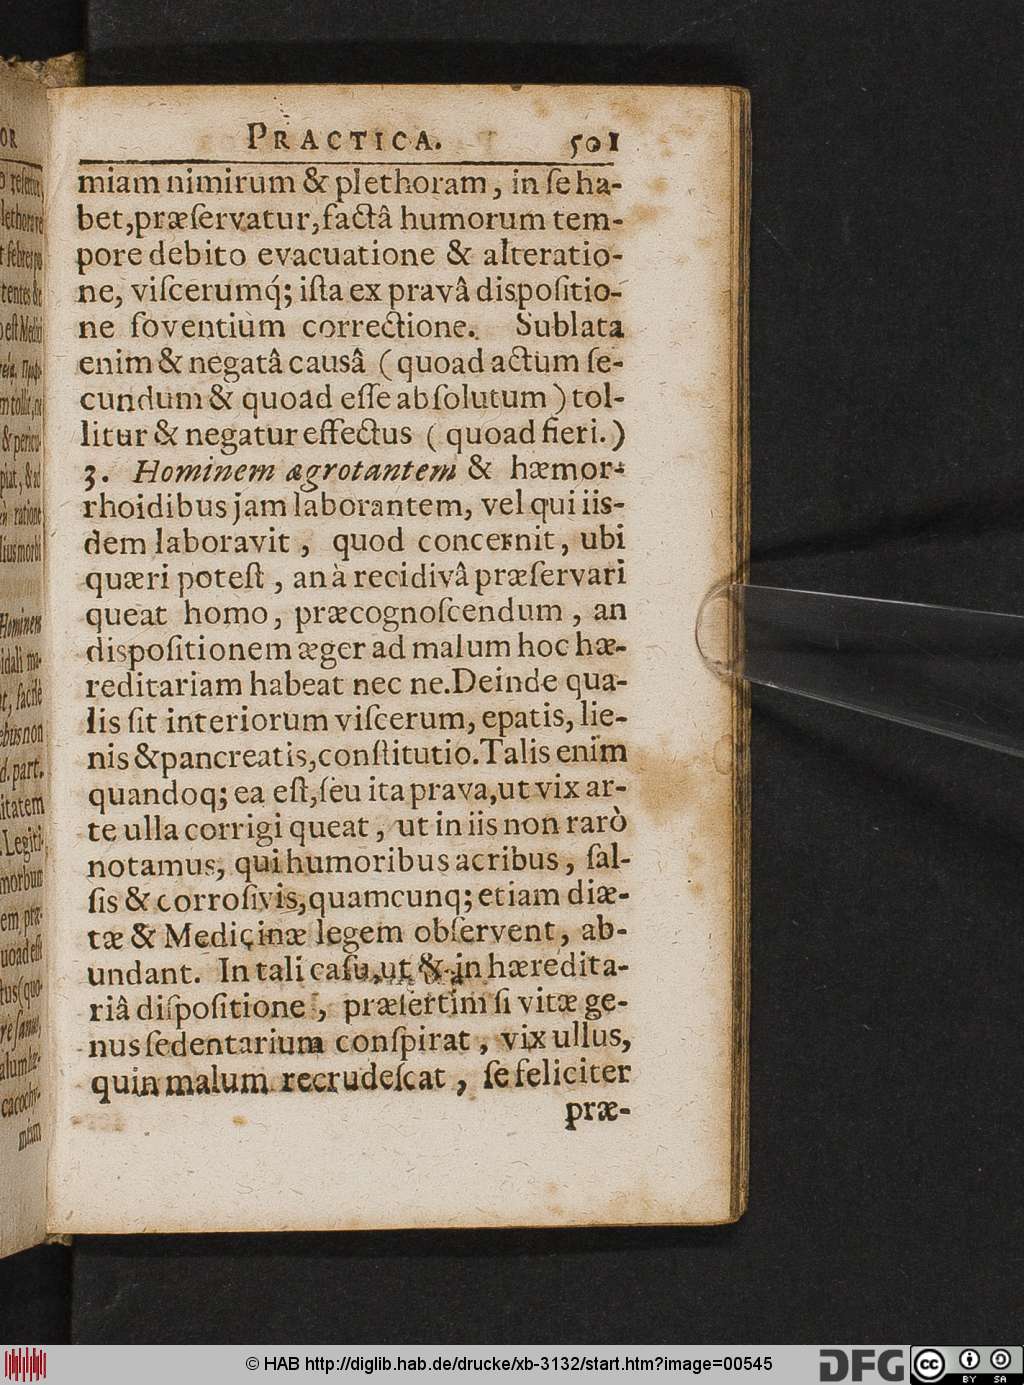 PRACTICA. 501
miam nimirum & plethoram, in ſe ha-
bet, præſervatur, factâ humorum tem-
pore debito evacuatione & alteratio-
ne, viſcerumq́; iſta ex pravâ dispoſitio-
ne foventium correctione. Sublata
enim & negatâ causâ (quoad actum ſe-
cundum & quoad eſſe abſolutum) tol-
litur & negatur effectus (quoad fieri.)
3. Hominem ægrotantem & hæmor-
rhoidibus jam laborantem, vel qui iis-
dem laboravit, quod concernit, ubi
quæri poteſt, an à recidivâ præſervari
queat homo, præcognoſcendum, an
dispoſitionem æger ad malum hoc hæ-
reditariam habeat nec ne. Deinde qua-
lis ſit interiorum viſcerum, epatis, lie-
nis & pancreatis, conſtitutio. Talis enim
quandoq; ea eſt, ſeu ita prava, ut vix ar-
te ulla corrigi queat, ut in iis non rarò
notamus, qui humoribus acribus, ſal-
ſis & corroſivis, quamcunq; etiam diæ-
tæ & Medicinæ legem obſervent, ab-
undant. In tali caſu, ut & in hæredita-
riâ diſpoſitione, præſertim ſi vitæ ge-
nus ſedentarium conſpirat, vix ullus,
quin malum recrudeſcat, ſe feliciter
præ-
OR
lethorare
tentes &
est Medici
& pericu-
ratione
lius morbi
Hominem
idali ma-
t, facilè
ebus non
d. part.
itatem
Legiti-
morbum
em præ-
uoad eſt
cacochy-
miam
© HAB http://diglib.hab.de/drucke/xb-3132/start.htm?image=00545
DFG
cc
BY SA